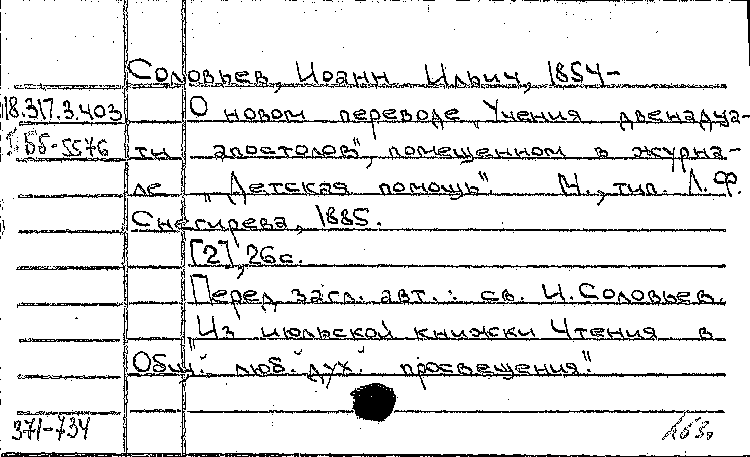 Соловьев, Иоанн Ильич, 1854-
18.317.3.403 О новом переводе „Учения двенадца-
55-5576 ти апостолов", помещенном в журна-
ле „Детская помощь". М., тип. Л.Ф.
Снегирева, 1885.
[2], 26 с.
Перед загл. авт.: св. И. Соловьев.
„Из июльской книжки Чтения в
Общ. люб. дух. просвещения."
371-734